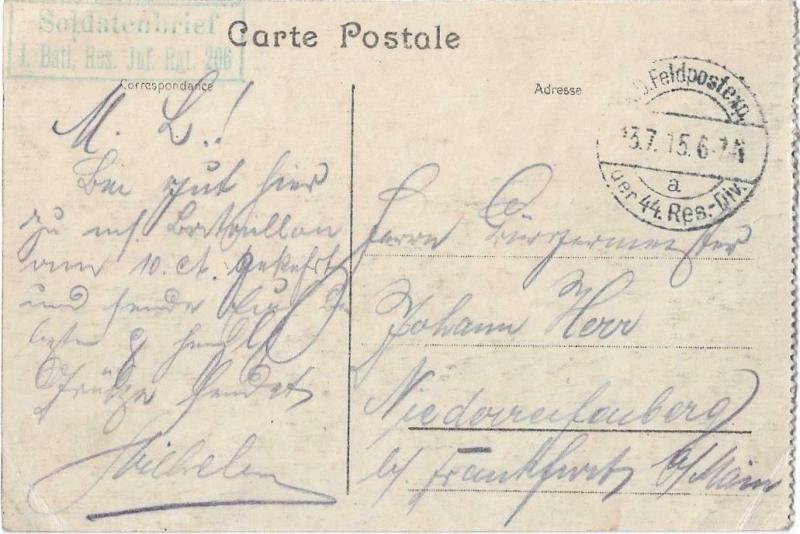 Soldatenbrief
I. Batl. Res. Inf. Rgt. 206
Carte Postale
Correspondance
Adresse
K.D. Feldpostexp.
13.7.15. 6-7 N
a
der 44. Res.-Div.
M. L.!
Bin gut hier
zu mf. Bataillon
am 10. ct.
und sende
Grüße sendet
Wilhelm
Herrn Bürgermeister
Johann Herr
Niederreifenberg
b/ Frankfurt a/Main